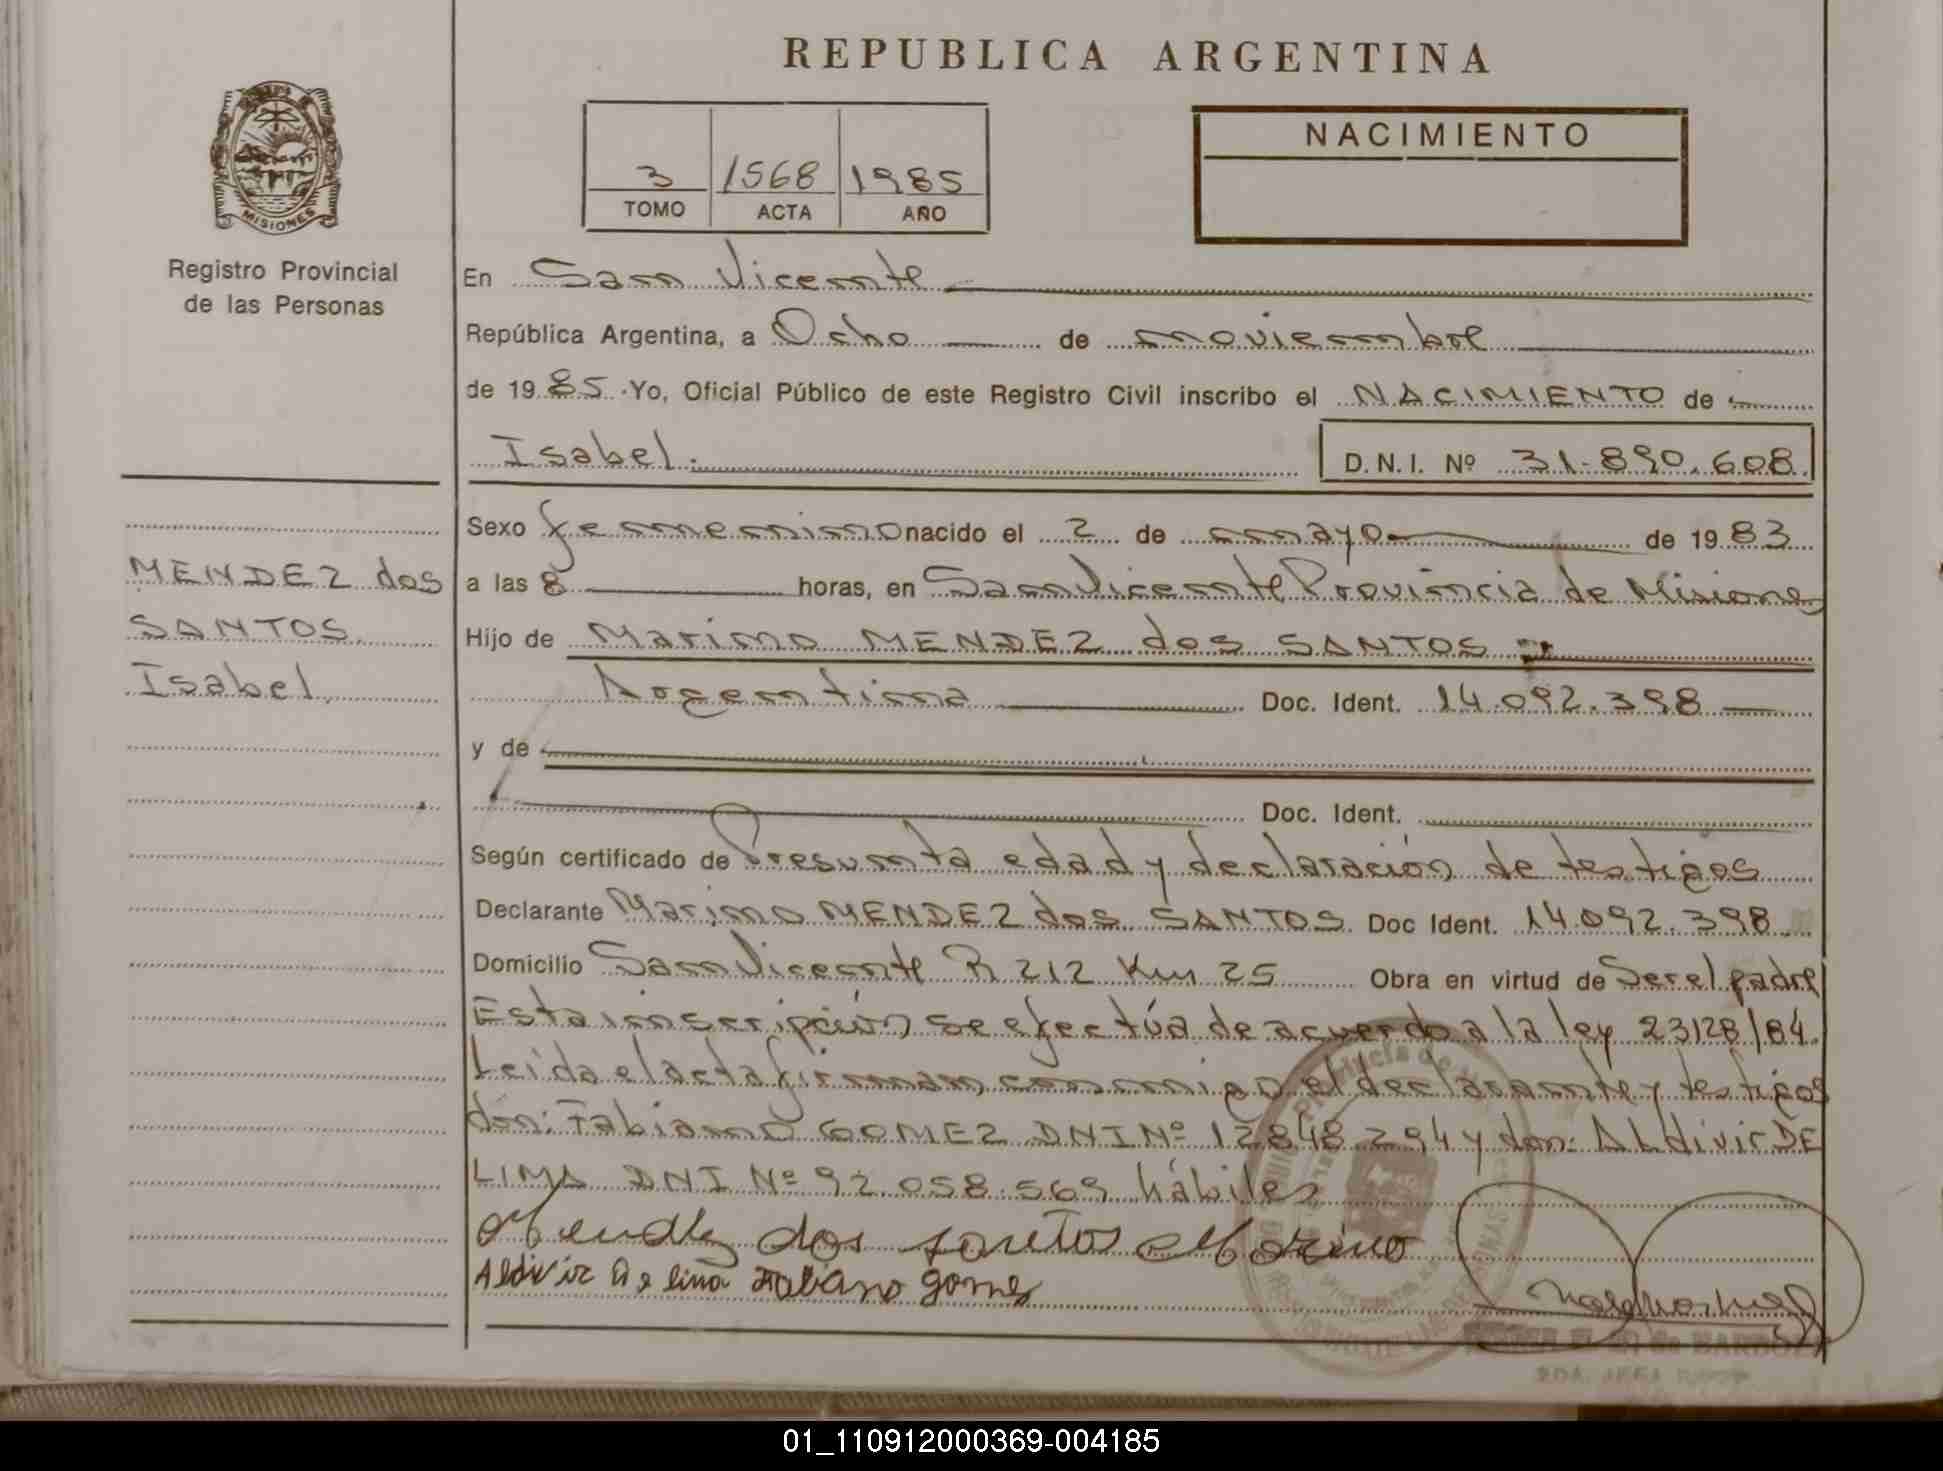 REPUBLICA ARGENTINA
3 1568 1985
TOMO ACTA AÑO
NACIMIENTO
MISIONES
Registro Provincial
de las Personas
En San Vicente
República Argentina, a Ocho de noviembre
de 1985 Yo, Oficial Público de este Registro Civil inscribo el NACIMIENTO de
Isabel. D.N.I. Nº 31.890.608.
Sexo femenino nacido el 2 de mayo de 1983
MENDEZ dos
SANTOS.
Isabel.
a las 8 horas, en San Vicente Provincia de Misiones
Hijo de Marino MENDEZ dos SANTOS
Argentina Doc. Ident. 14.092.398
y de
Doc. Ident.
Según certificado de Presunta edad y declaración de testigos
Declarante Marino MENDEZ dos SANTOS. Doc Ident. 14.092.398
Domicilio San Vicente R 212 Km 25 Obra en virtud de Ser el padre
Esta inscripción se efectúa de acuerdo a la ley 23128/84.
Leida el acta firman, conmigo el declarante y testigos
don: Fabiano GOMEZ DNI Nº 12848294 y don: ALdivir DE
LIMA DNI Nº 92.058.569 hábiles
Mendez dos santos Marino
Aldivir De lima Fabiano gomes
01_110912000369-004185